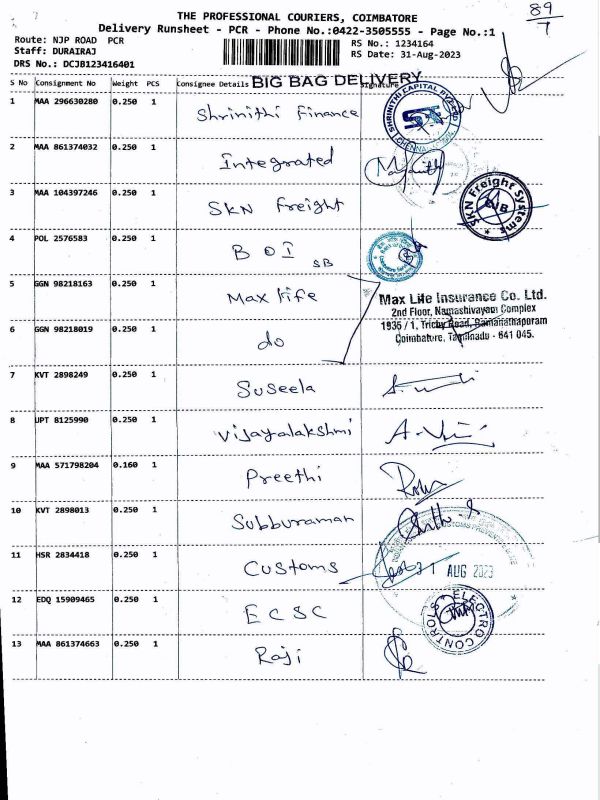 89
7
THE PROFESSIONAL COURIERS, COIMBATORE
Delivery Runsheet - PCR - Phone No.:0422-3505555 - Page No.:1
Route: NJP ROAD PCR
RS No.: 1234164
Staff: DURAIRAJ
RS Date: 31-Aug-2023
DRS No.: DCJB123416401
BIG BAG DELIVERY
S No Consignment No Weight PCS Consignee Details Signature
1 MAA 296630280 0.250 1 Shrinithi Finance
SHRINITHI CAPITAL PVT LTD
CHENNAI
2 MAA 861374032 0.250 1 Integrated
3 MAA 104397246 0.250 1 SKN Freight
SKN Freight Systems
CJB
4 POL 2576583 0.250 1 BOI SB
5 GGN 98218163 0.250 1 Max life
Max Life Insurance Co. Ltd.
2nd Floor, Namashivayam Complex
1936 / 1, Trichy Road, Ramanathapuram
Coimbature, Tamilnadu - 641 045.
6 GGN 98218019 0.250 1 do
7 KVT 2898249 0.250 1 Suseela
8 JPT 8125990 0.250 1 Vijayalakshmi
9 MAA 571798204 0.160 1 Preethi
10 KVT 2898013 0.250 1 Subburaman
11 HSR 2834418 0.250 1 Customs
31 AUG 2023
12 EDQ 15909465 0.250 1 ECSC
ELECTRO CONTROLS
13 MAA 861374663 0.250 1 Raji